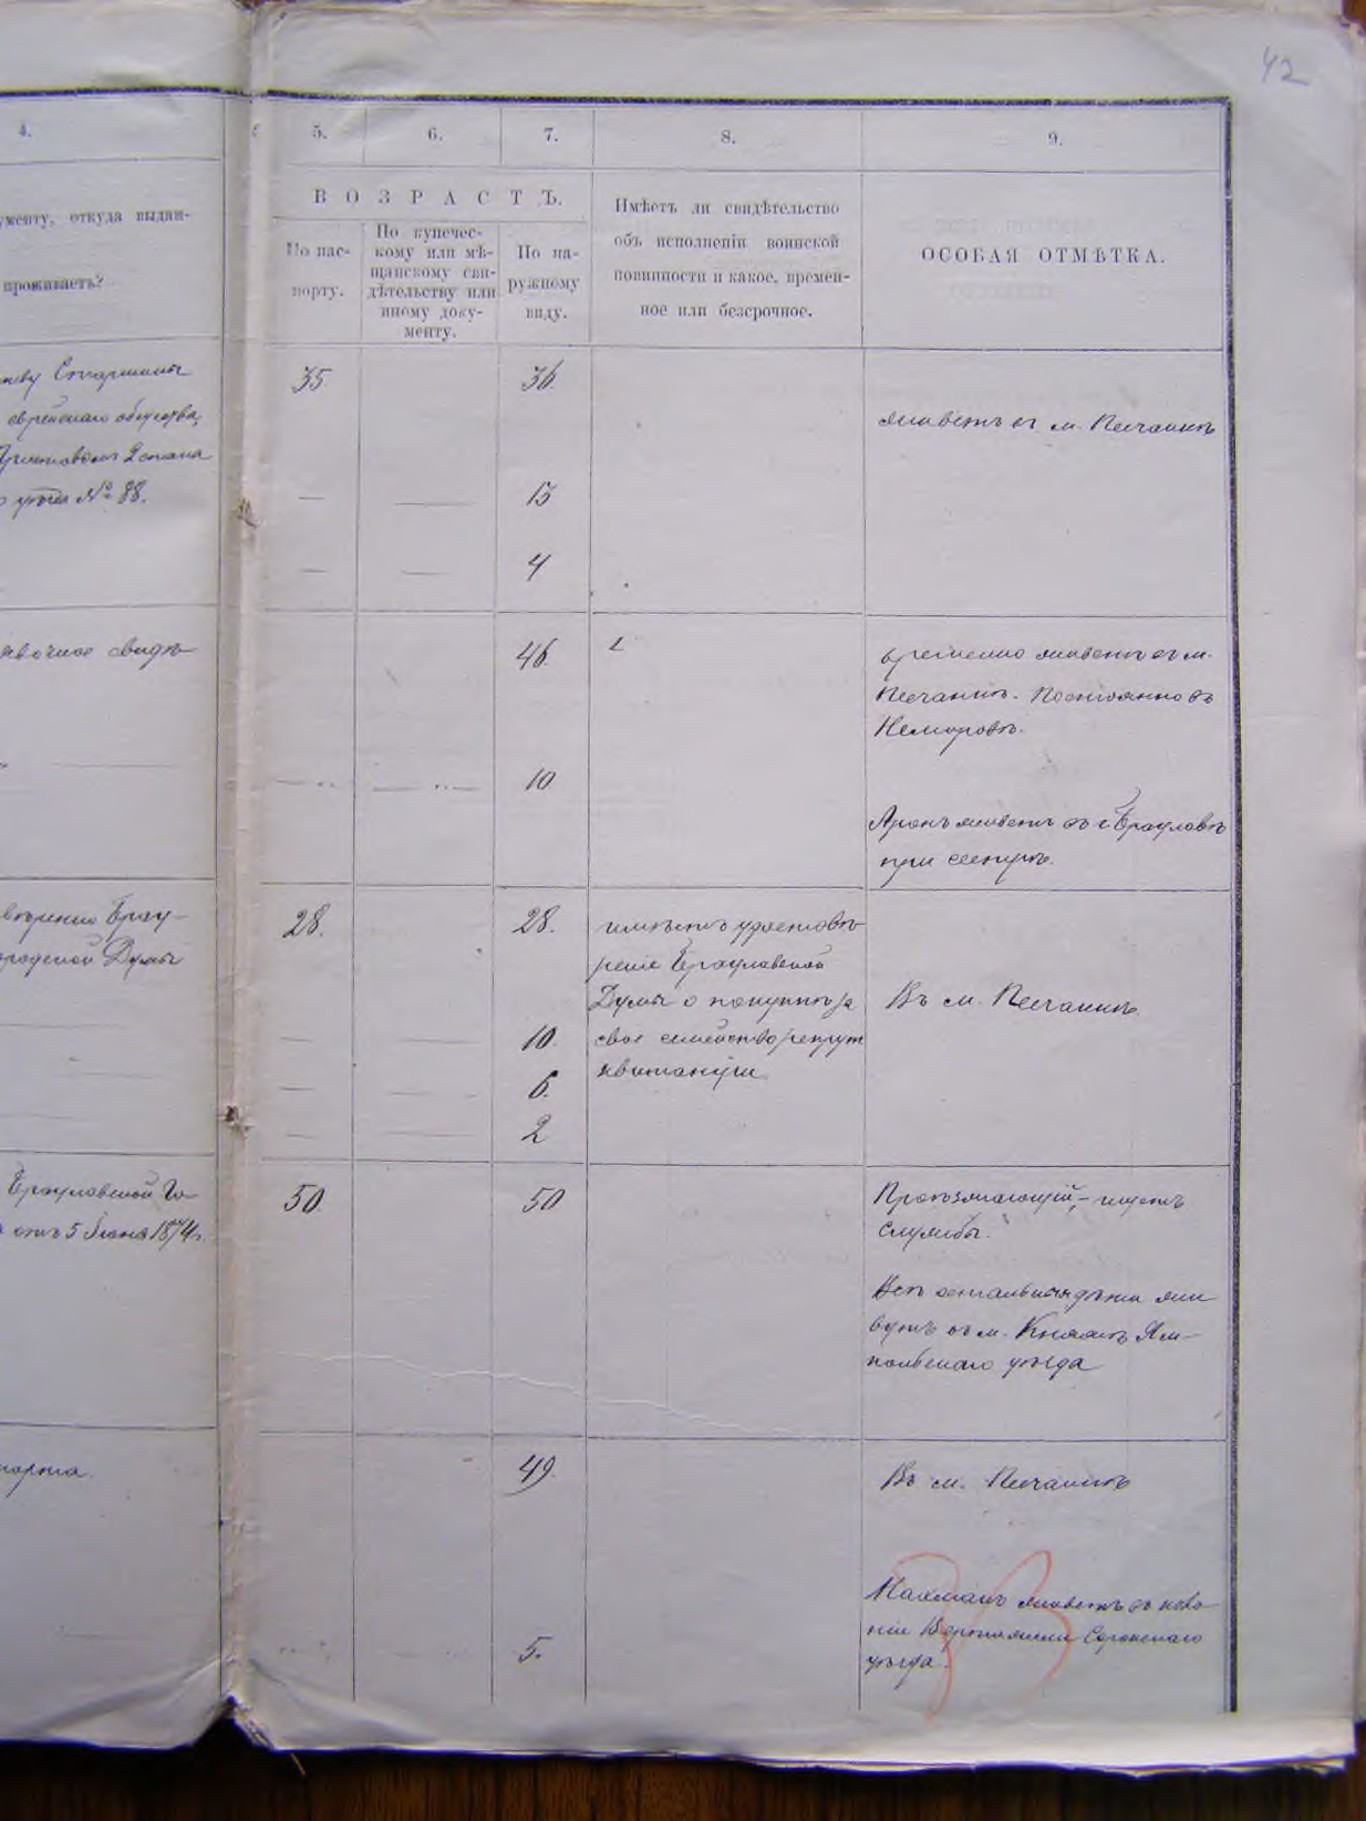 42
4.
5.
6.
7.
8.
9.
ументу, откуда выдан-
проживаетъ?
ВОЗРАСТЪ.
По пас-
порту.
По купечес-
кому или мѣ-
щанскому сви-
дѣтельству или
иному доку-
менту.
По на-
ружному
виду.
Имѣетъ ли свидѣтельство
объ исполненіи воинской
повинности и какое, времен-
ное или безсрочное.
ОСОБАЯ ОТМѢТКА.
Старшины
еврейскаго общества,
Приставомъ 2 стана
уѣзда № 88.
35
36.
живетъ въ м. Песчанкѣ
— — 13
— — 4
явочное свидѣ-
46.
временно живетъ въ м.
Песчанкѣ. Постоянно въ
Немировѣ.
10
Аронъ живетъ въ г. Брацлавѣ
при
Брац-
городской Думы
28.
28.
имѣетъ удостовѣ-
реніе Брацлавской
Думы о покупкѣ за
свое семейство рекрут
квитанціи
Въ м. Песчанкѣ
— — 10.
— — 6.
— — 2
Брацлавской Го-
отъ 5 Іюня 1874 г.
50.
50
Проѣзжающій, – ищетъ
службы.
Всѣ остальныя дѣти жи
вутъ въ м. Княжѣ Ям-
польскаго уѣзда
порта.
49.
Въ м. Песчанкѣ
Нахманъ живетъ въ коло-
ніи Вертюжени Сорокскаго
уѣзда.
5.